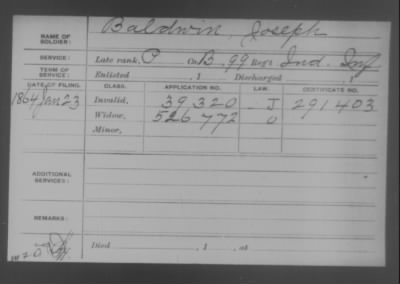 NAME OF SOLDIER: Baldwin, Joseph
SERVICE: Late rank, P Co. B. 99 Reg't Ind. Inf
TERM OF SERVICE: Enlisted , 1 Discharged , 1
DATE OF FILING. CLASS. APPLICATION NO. LAW. CERTIFICATE NO.
1864 Jan 23 Invalid, 39320 J 291403
Widow, 526772 O
Minor,
ADDITIONAL SERVICES:
REMARKS:
Died , 1 , at